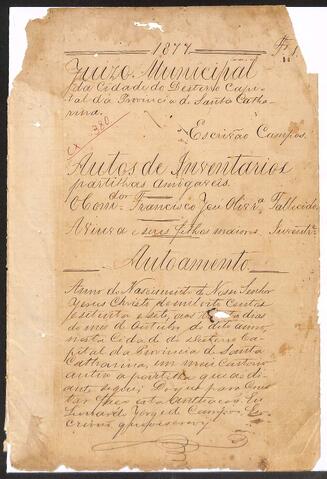 1877
Fs 1
Juizo Municipal
da Cidade do Desterro Capi-
tal da Provincia de Santa Catha-
rina.
Cx 380
Escrivão Campos.
Autos de Inventarios
partilhas amigaveis.
O Com.dor Francisco José Olivr.ª Fallecido
A Viuva e seus filhos maiores. Inventr.
Autoamento
Anno do Nascimento de Nosso Senhor
Jesus Christo de mil oito centos
setenta e sete, aos dias
do mes de Outubro do dito anno,
nesta Cidade do Desterro Ca-
pital da Provincia de Santa
Catharina, em meu Cartorio
autuo a partilha que ao di-
ante segue; Do que para Cons-
tar fiz esta Eu
Leonardo Jorge de Campos, Es-
crivão que escrevy